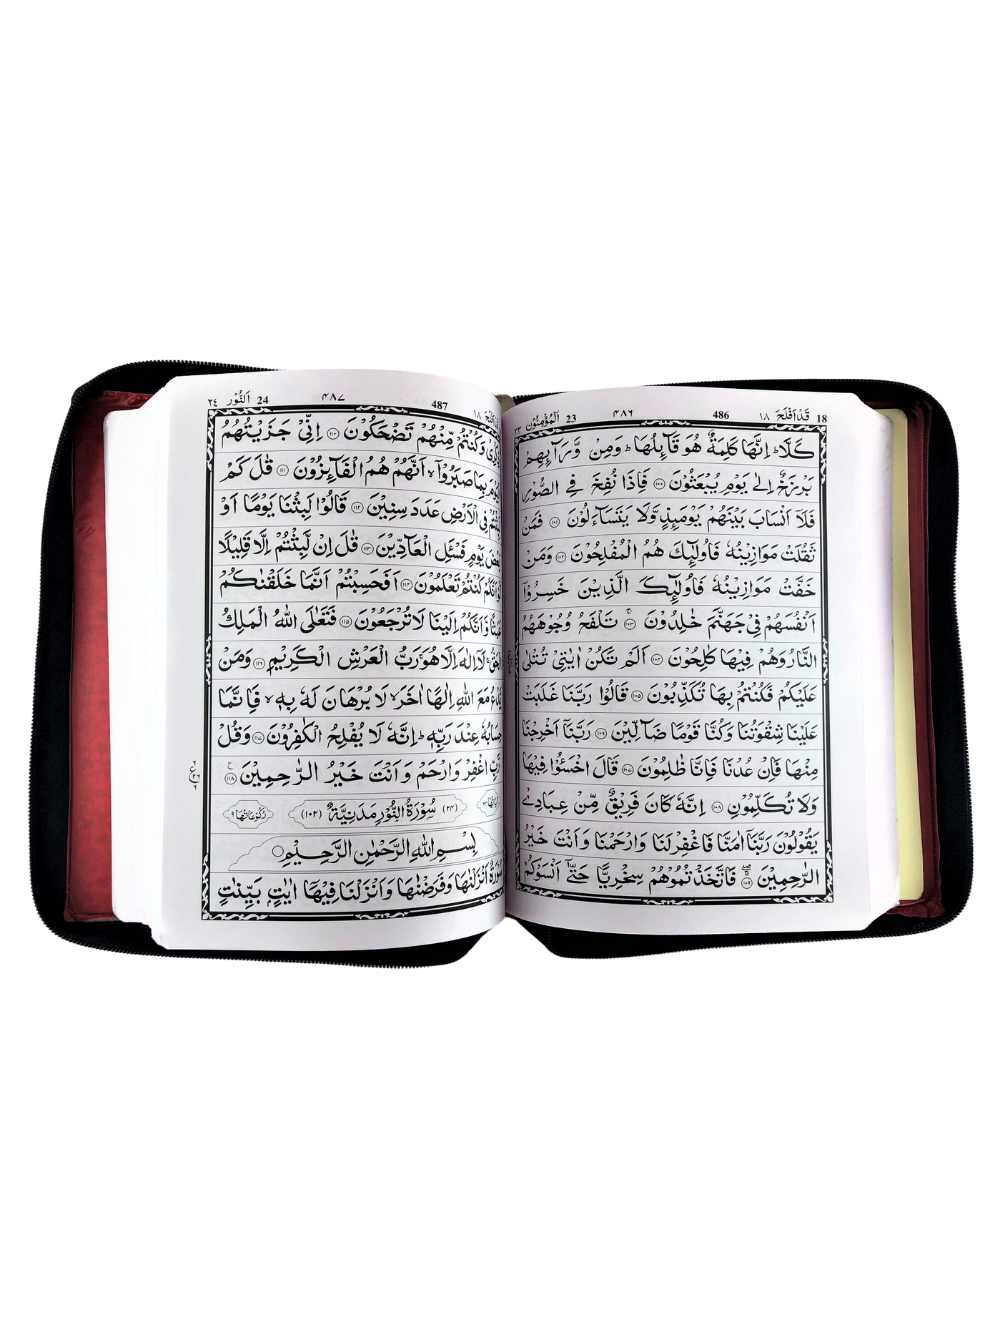 18 قَدْ اَفْلَحَ ١٨ 486 ٤٨٦ 23 اَلْمُؤْمِنُوْن ٢٣
كَلَّا ؕ اِنَّهَا كَلِمَةٌ هُوَ قَآئِلُهَا ؕ وَمِنْ وَّرَآئِهِمْ
بَرْزَخٌ اِلٰى يَوْمِ يُبْعَثُوْنَ ﴿١٠٠﴾ فَاِذَا نُفِخَ فِى الصُّوْرِ
فَلَآ اَنْسَابَ بَيْنَهُمْ يَوْمَىِٕذٍ وَّلَا يَتَسَآءَلُوْنَ ﴿١٠١﴾ فَمَنْ
ثَقُلَتْ مَوَازِيْنُهٗ فَاُولٰٓىِٕكَ هُمُ الْمُفْلِحُوْنَ ﴿١٠٢﴾ وَمَنْ
خَفَّتْ مَوَازِيْنُهٗ فَاُولٰٓىِٕكَ الَّذِيْنَ خَسِرُوْٓا
اَنْفُسَهُمْ فِىْ جَهَنَّمَ خٰلِدُوْنَ ﴿١٠٣﴾ تَلْفَحُ وُجُوْهَهُمُ
النَّارُ وَهُمْ فِيْهَا كٰلِحُوْنَ ﴿١٠٤﴾ اَلَمْ تَكُنْ اٰيٰتِىْ تُتْلٰى
عَلَيْكُمْ فَكُنْتُمْ بِهَا تُكَذِّبُوْنَ ﴿١٠٥﴾ قَالُوْا رَبَّنَا غَلَبَتْ
عَلَيْنَا شِقْوَتُنَا وَكُنَّا قَوْمًا ضَآلِّيْنَ ﴿١٠٦﴾ رَبَّنَآ اَخْرِجْنَا
مِنْهَا فَاِنْ عُدْنَا فَاِنَّا ظٰلِمُوْنَ ﴿١٠٧﴾ قَالَ اخْسَـُٔوْا فِيْهَا
وَلَا تُكَلِّمُوْنِ ﴿١٠٨﴾ اِنَّهٗ كَانَ فَرِيْقٌ مِّنْ عِبَادِىْ
يَقُوْلُوْنَ رَبَّنَآ اٰمَنَّا فَاغْفِرْ لَنَا وَارْحَمْنَا وَاَنْتَ خَيْرُ
الرّٰحِمِيْنَ ﴿١٠٩﴾ فَاتَّخَذْتُمُوْهُمْ سِخْرِيًّا حَتّٰٓى اَنْسَوْكُمْ
١٨ 487 ٤٨٧ 24 اَلنُّوْر ٢٤
وَكُنْتُمْ مِّنْهُمْ تَضْحَكُوْنَ ﴿١١٠﴾ اِنِّىْ جَزَيْتُهُمُ
بِمَا صَبَرُوْٓا ۙ اَنَّهُمْ هُمُ الْفَآئِزُوْنَ ﴿١١١﴾ قٰلَ كَمْ
فِى الْاَرْضِ عَدَدَ سِنِيْنَ ﴿١١٢﴾ قَالُوْا لَبِثْنَا يَوْمًا اَوْ
يَوْمٍ فَسْـَٔلِ الْعَآدِّيْنَ ﴿١١٣﴾ قٰلَ اِنْ لَّبِثْتُمْ اِلَّا قَلِيْلًا
كُنْتُمْ تَعْلَمُوْنَ ﴿١١٤﴾ اَفَحَسِبْتُمْ اَنَّمَا خَلَقْنٰكُمْ
وَّاَنَّكُمْ اِلَيْنَا لَا تُرْجَعُوْنَ ﴿١١٥﴾ فَتَعٰلَى اللّٰهُ الْمَلِكُ
لَآ اِلٰهَ اِلَّا هُوَ ۚ رَبُّ الْعَرْشِ الْكَرِيْمِ ﴿١١٦﴾ وَمَنْ
مَعَ اللّٰهِ اِلٰهًا اٰخَرَ ۙ لَا بُرْهَانَ لَهٗ بِهٖ ۙ فَاِنَّمَا
عِنْدَ رَبِّهٖ ؕ اِنَّهٗ لَا يُفْلِحُ الْكٰفِرُوْنَ ﴿١١٧﴾ وَقُلْ
رَّبِّ اغْفِرْ وَارْحَمْ وَاَنْتَ خَيْرُ الرّٰحِمِيْنَ ﴿١١٨﴾
(٢٤) سُوْرَةُ النُّوْرِ مَدَنِيَّةٌ (١٠٢) رُكُوْعَاتُهَا ٩
بِسْمِ اللّٰهِ الرَّحْمٰنِ الرَّحِيْمِ
سُوْرَةٌ اَنْزَلْنٰهَا وَفَرَضْنٰهَا وَاَنْزَلْنَا فِيْهَآ اٰيٰتٍۭ بَيِّنٰتٍ